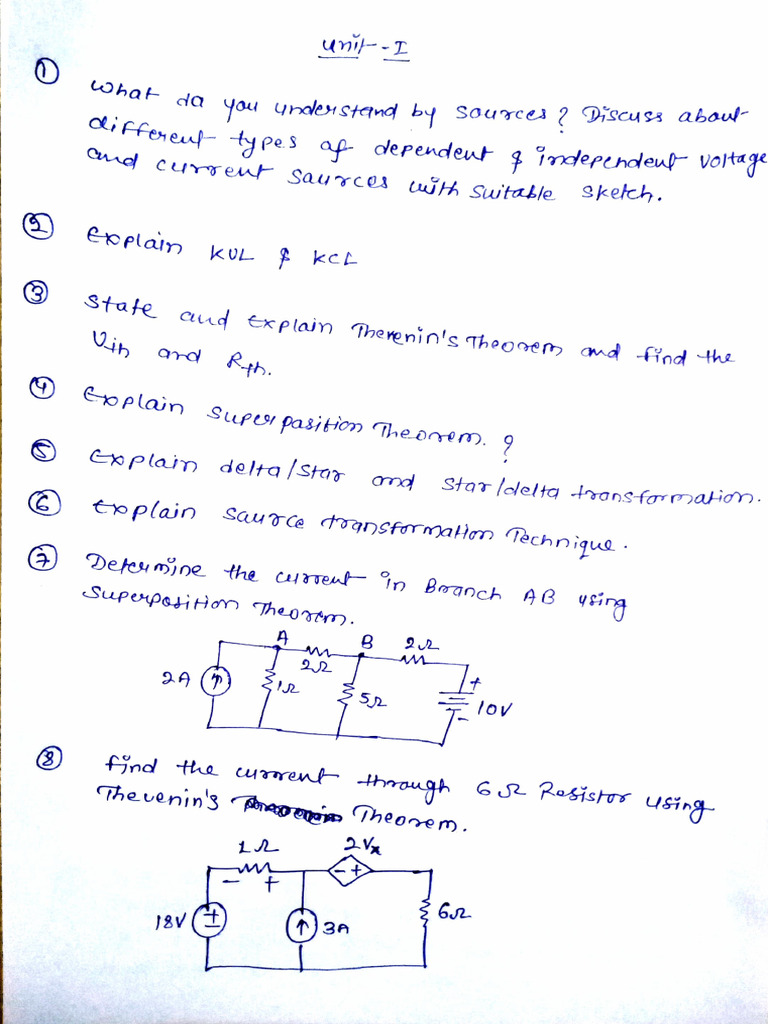 Unit-I
① What do you understand by sources? Discuss about
different types of dependent & independent voltage
and current sources with suitable sketch.
② Explain KVL & KCL
③ State and Explain Thevenin's Theorem and find the
Vth and Rth.
④ Explain superposition Theorem.?
⑤ Explain delta/star and star/delta transformation.
⑥ Explain source transformation Technique.
⑦ Determine the current in Branch AB using
Superposition Theorem.
A B 2Ω
2Ω
2A 1Ω 5Ω + - 10V
⑧ find the current through 6Ω Resistor using
Thevenin's Theorem.
1Ω 2Vx
- + - +
18V + - 3A 6Ω